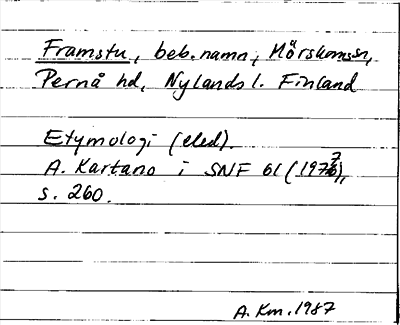 Framstu, beb.namn, Mörskom sn,
Pernå hd, Nylands l. Finland
Etymologi (eled).
A. Kartano i SNF 61 (1977),
s. 260.
A. Km. 1987